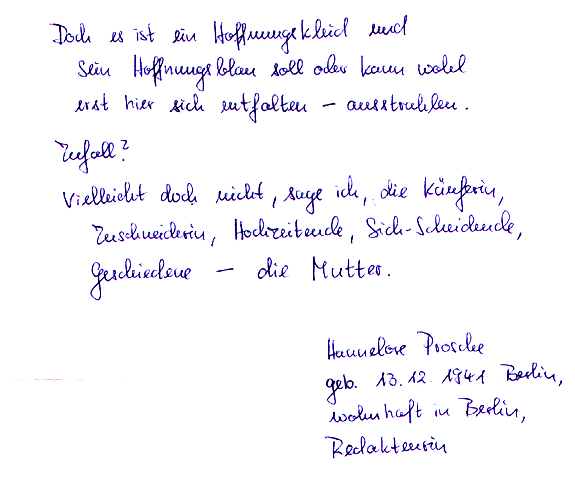 Doch es ist ein Hoffnungskleid und
Sein Hoffnungsblau soll oder kann wohl
erst hier sich entfalten – ausstrahlen.
Zufall?
Vielleicht doch nicht, sage ich, die Käuferin,
Zuschneiderin, Hochzeitende, Sich-Scheidende,
Geschiedene – die Mutter.
Hannelore Prosche
geb. 13.12.1941 Berlin,
wohnhaft in Berlin,
Redakteurin